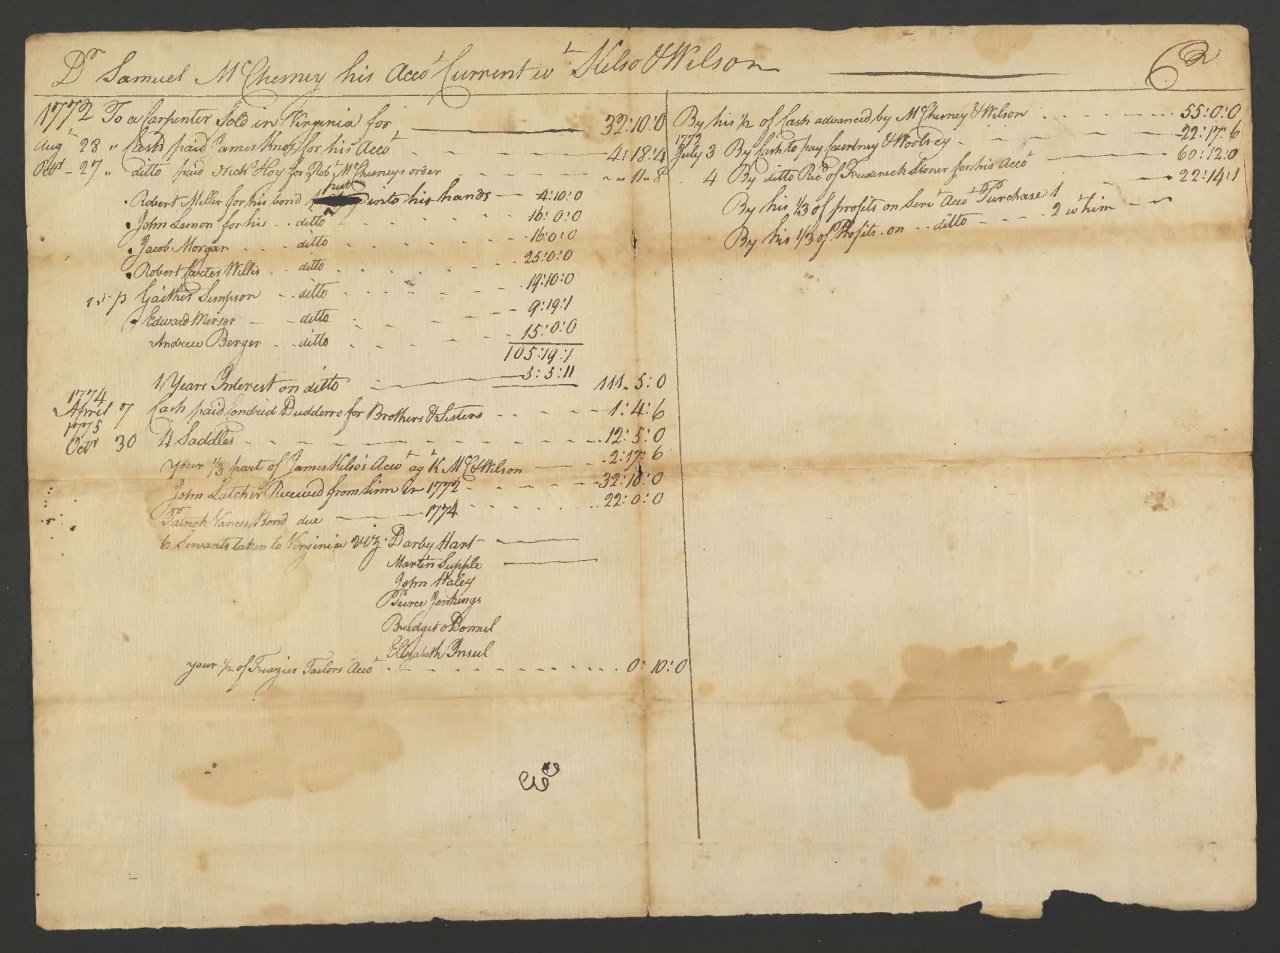 Dr Samuel McCherney his Acco.t Current wt Kelso & Wilson Cr
1772 To a Carpenter Sold in Virginia for 32:10:0
Augt 28 " Cash paid James Knox for his Acco.t 4:18:4
27 " ditto paid Nichs Hoy for Robt McCherneys order " 11:8
Robert Miller for his bond put into his hands 4:10:0
John Lemon for his ditto 16:0:0
Jacob Morgan ditto 16:0:0
Robert Carter Willis ditto 25:0:0
Gaither Simpson ditto 19:10:0
Edward Merser ditto 9:19:1
Andrew Berger ditto 15:0:0
105:19:1
1 Years Interest on ditto 5:5:11 111:5:0
1774
April 7 Cash paid Dudderro for Brothers & Sisters 1:4:6
1775
Octr 30 4 Saddles 12:5:0
your 1/3 part of James Kelso's Acco.t agt K McC & Wilson 2:17:6
John Latcher Received from him in 1772 32:18:0
Patrick Vances Bond due 1774 22:0:0
6 Servants taken to Virginia viz. Darby Hart
Martin Supple
John Haley
Pierce Jenkings
Bridget oDonnel
Elizabeth
your 1/2 of Frazier Tailors Acco.t 0:10:0
By his 1/2 of Cash advanced by McCherney & Wilson 55:0:0
1773
July 3 By Cash to pay & Woolsey 22:17:6
4 By ditto Recd of Frederick Stoner for his Acco.t 60:12:0
By his 1/3 of profits on Servt Acct Purchase 1 22:14:1
By his 1/3 of Profits on ditto 2 wt him